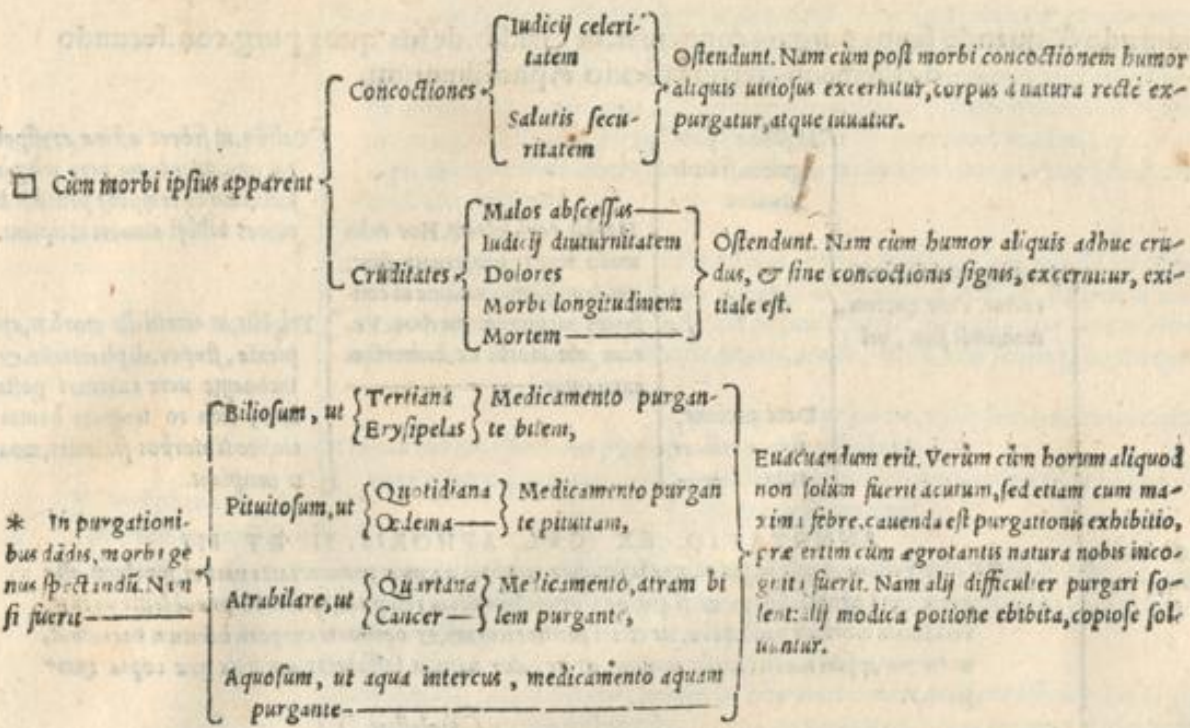 Iudicij celeri-
tatem
Salutis secu-
ritatem
Concoctiones
Ostendunt. Nam cùm post morbi concoctionem humor
aliquis uitiosus excernitur, corpus à natura rectè ex-
purgatur, atque iuuatur.
□ Cùm morbi ipsius apparent
Malos abscessus
Iudicij diuturnitatem
Dolores
Morbi longitudinem
Mortem
Cruditates
Ostendunt. Nam cùm humor aliquis adhuc cru-
dus, & sine concoctionis signis, excernitur, exi-
tiale est.
* In purgationi-
bus dãdis, morbi ge
nus spectandũ. Nam
si fuerit
Biliosum, ut
Tertiana
Erysipelas
Medicamento purgan-
te bilem,
Pituitosum, ut
Quotidiana
Oedema
Medicamento purgan
te pituitam,
Atrabilare, ut
Quartana
Cancer
Medicamento, atram bi
lem purgante,
Aquosum, ut aqua intercus, medicamento aquam
purgante
Euacuandum erit. Verùm cùm horum aliquod
non solùm fuerit acutum, sed etiam cum ma-
xima febre, cauenda est purgationis exhibitio,
præsertim cùm ægrotantis natura nobis inco-
gnita fuerit. Nam alij difficulter purgari so-
lent: alij modica potione ebibita, copiose sol-
uuntur.